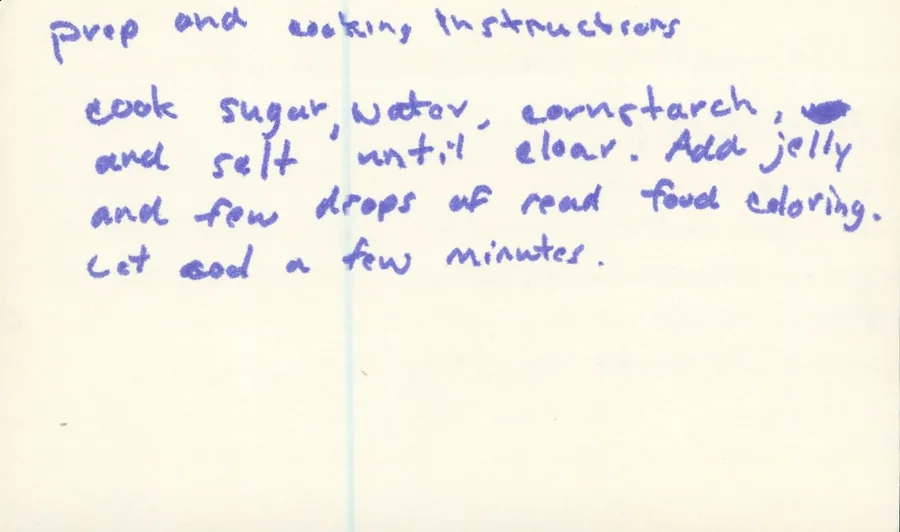 prep and cooking instructions
cook sugar, water, cornstarch,
and salt until clear. Add jelly
and few drops of read food coloring.
Let cool a few minutes.